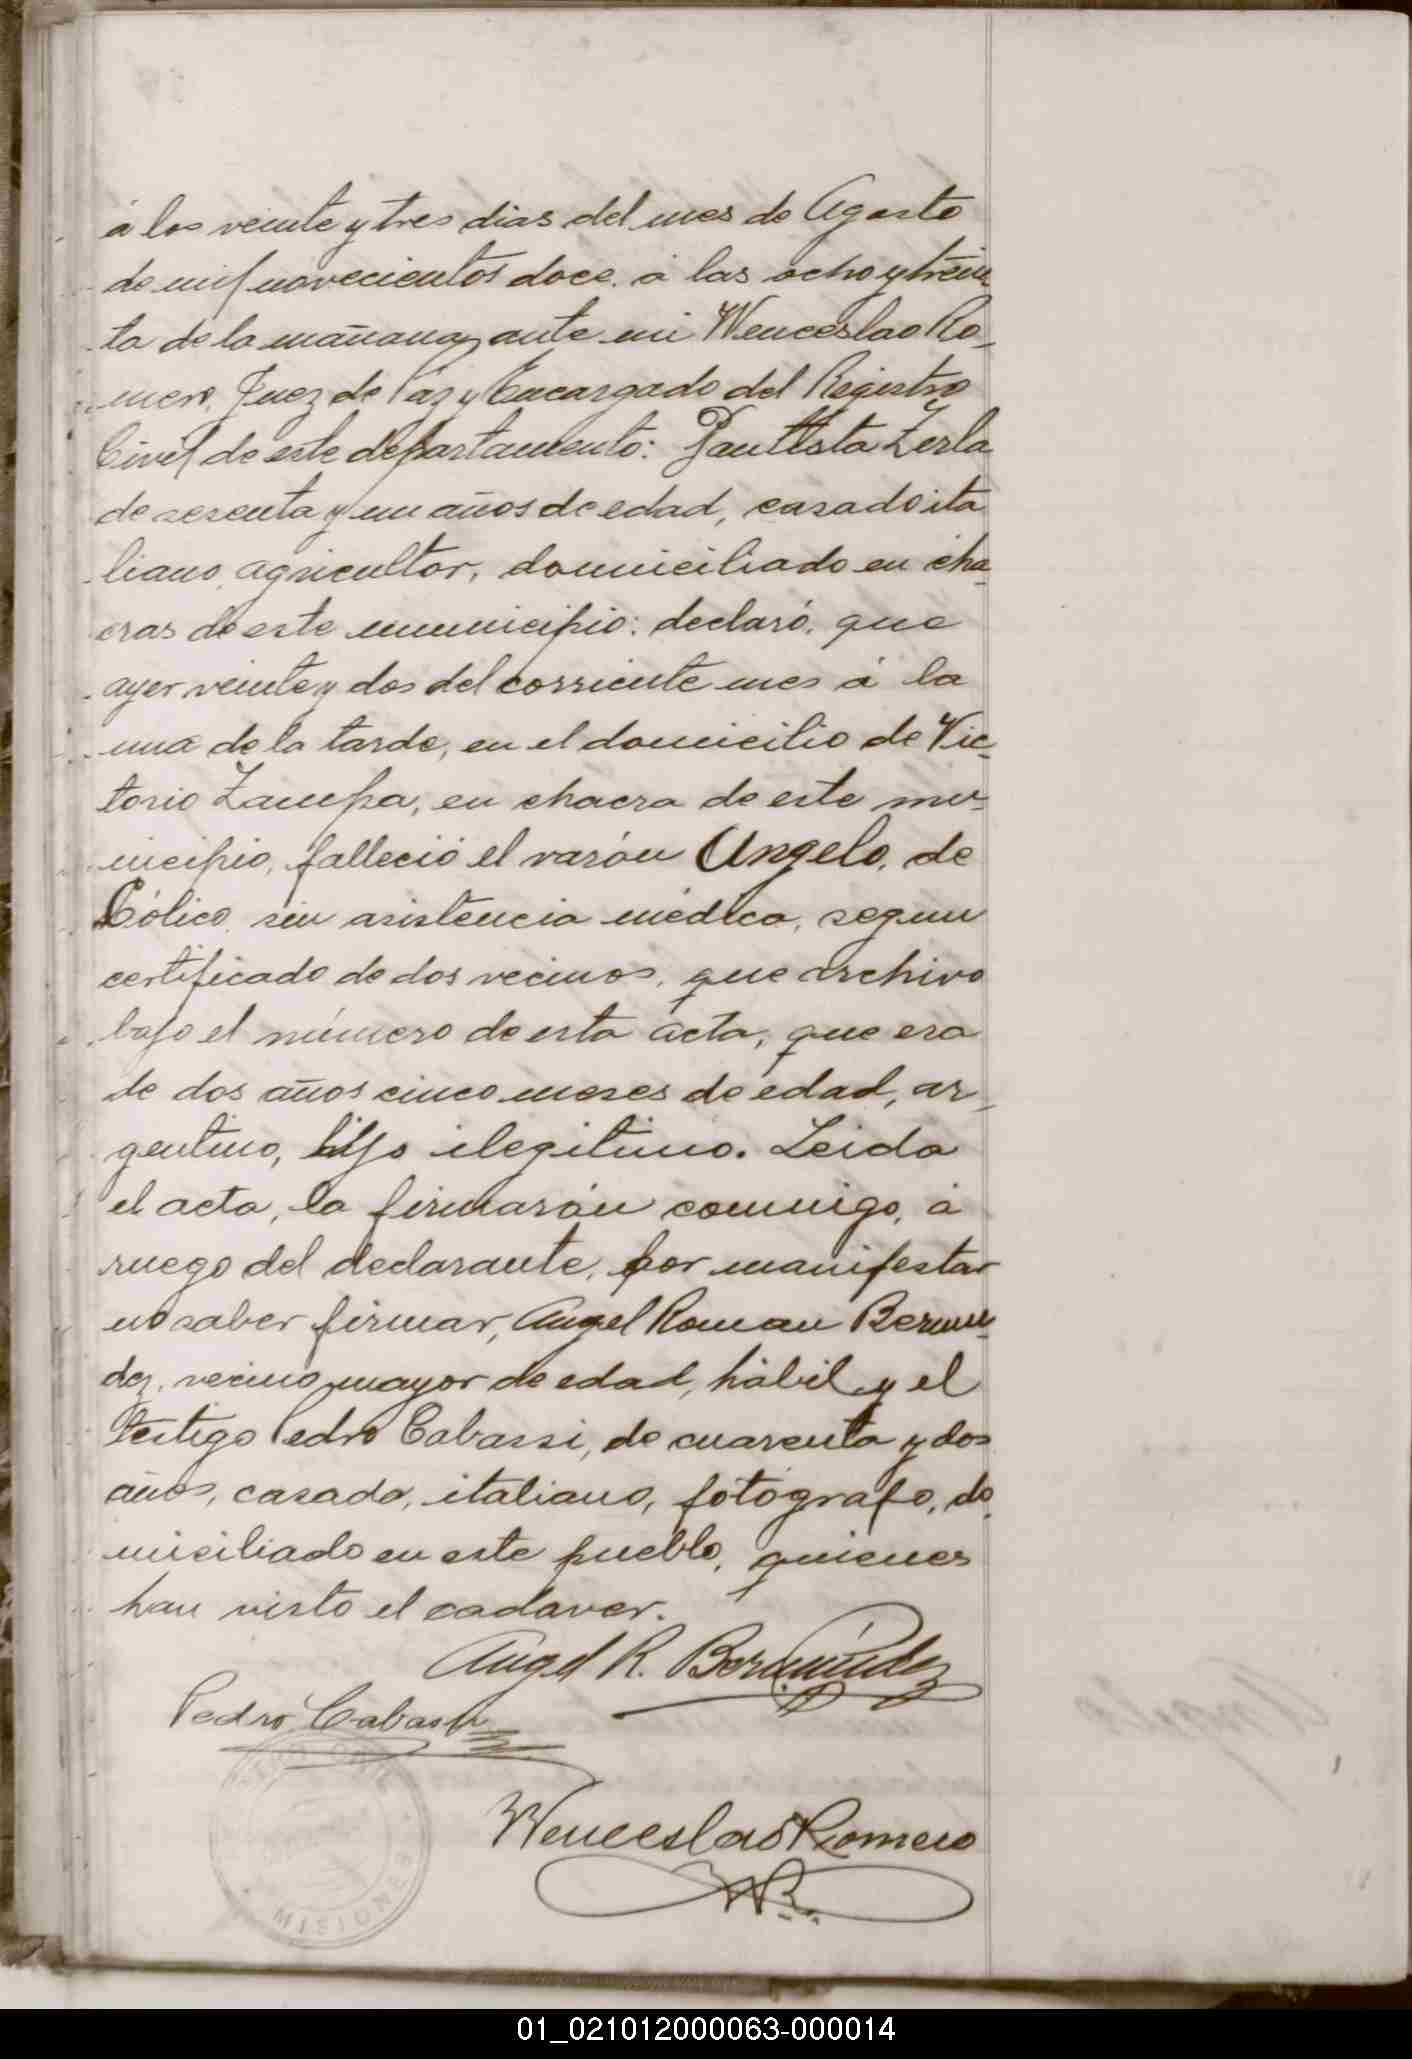 á los veinte y tres dias del mes de Agosto
de mil novecientos doce, á las ocho y trein-
ta de la mañana, ante mi Wenceslao Ro-
mero, Juez de Paz y Encargado del Registro
Civil de este departamento: Bautista Zerla
de sesenta y un años de edad, casado ita
liano, agricultor, domiciliado en cha-
cras de este municipio: declaró, que
ayer veinte y dos del corriente mes á la
una de la tarde, en el domicilio de Vic-
torio Zampa, en chacra de este mu-
nicipio, falleció el varón Angelo, de
Cólico, sin asistencia médica, segun
certificado de dos vecinos, que archivo
bajo el número de esta acta, que era
de dos años cinco meses de edad, ar-
gentino, hijo ilegitimo. Leida
el acta, la firmarón conmigo, á
ruego del declarante, por manifestar
no saber firmar, Angel Roman Bermu-
dez, vecino, mayor de edad, hábil y el
testigo Pedro Cabassi, de cuarenta y dos
años, casado, italiano, fotógrafo, do-
miciliado en este pueblo, quienes
han visto el cadaver.
Angel R. Bermúdez
Pedro Cabassi
Wenceslao Romero
W R.
MISIONES
Angelo
01_021012000063-000014